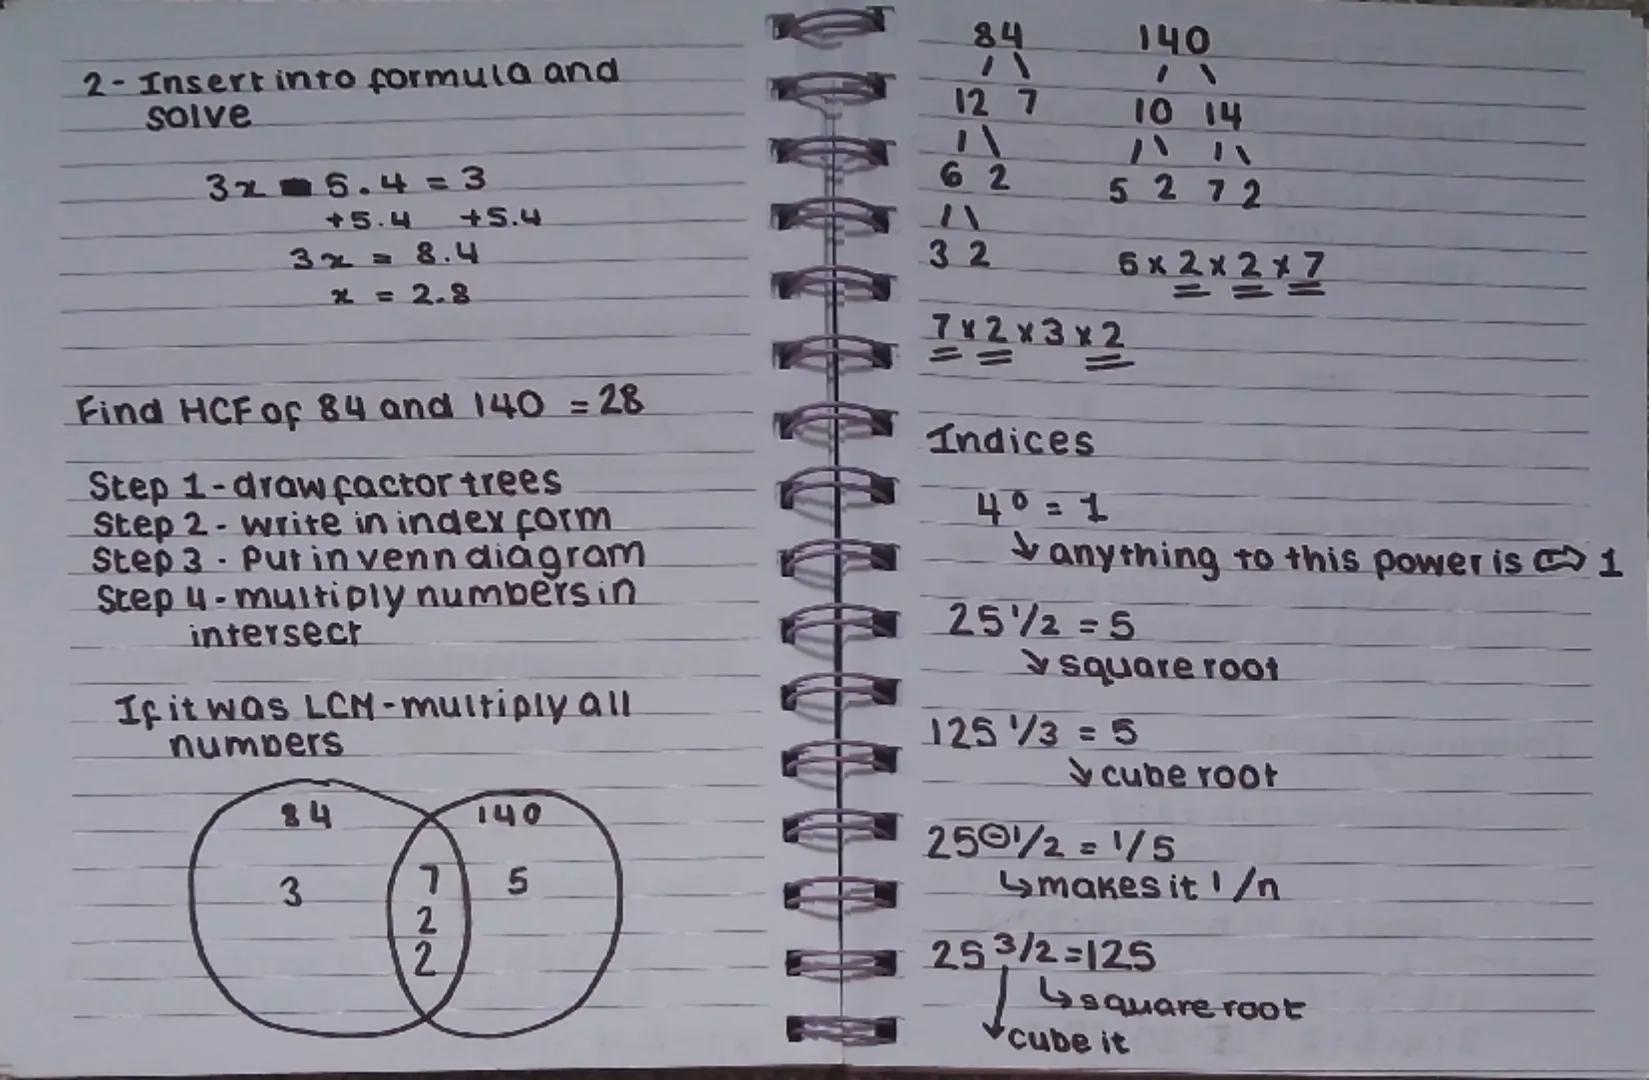 2- Insert into formula and
solve
3x - 5.4 = 3
+5.4 +5.4
3x = 8.4
x = 2.8
Find HCF of 84 and 140 = 28
Step 1 - draw factor trees
Step 2 - write in index form
Step 3 - Put in venn diagram
Step 4 - multiply numbers in
intersect
If it was LCM - multiply all
numbers
84 140
3 7 5
2
2
84 140
12 7 10 14
6 2 5 2 7 2
3 2
5 x 2 x 2 x 7
7 x 2 x 3 x 2
Indices
4⁰ = 1
↘ anything to this power is ⇨ 1
25 1/2 = 5
↘ square root
125 1/3 = 5
↘ cube root
25 ⊖1/2 = 1/5
↳ makes it 1/n
25 3/2 = 125
↳ square root
↓ cube it